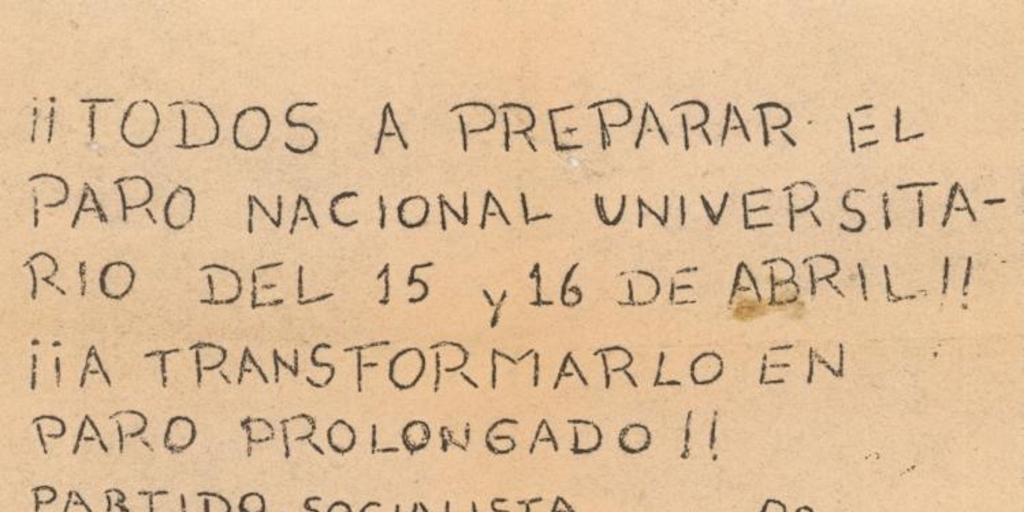 ¡¡TODOS A PREPARAR EL
PARO NACIONAL UNIVERSITA-
RIO DEL 15 y 16 DE ABRIL!!
¡¡A TRANSFORMARLO EN
PARO PROLONGADO!!
PARTIDO SOCIALISTA